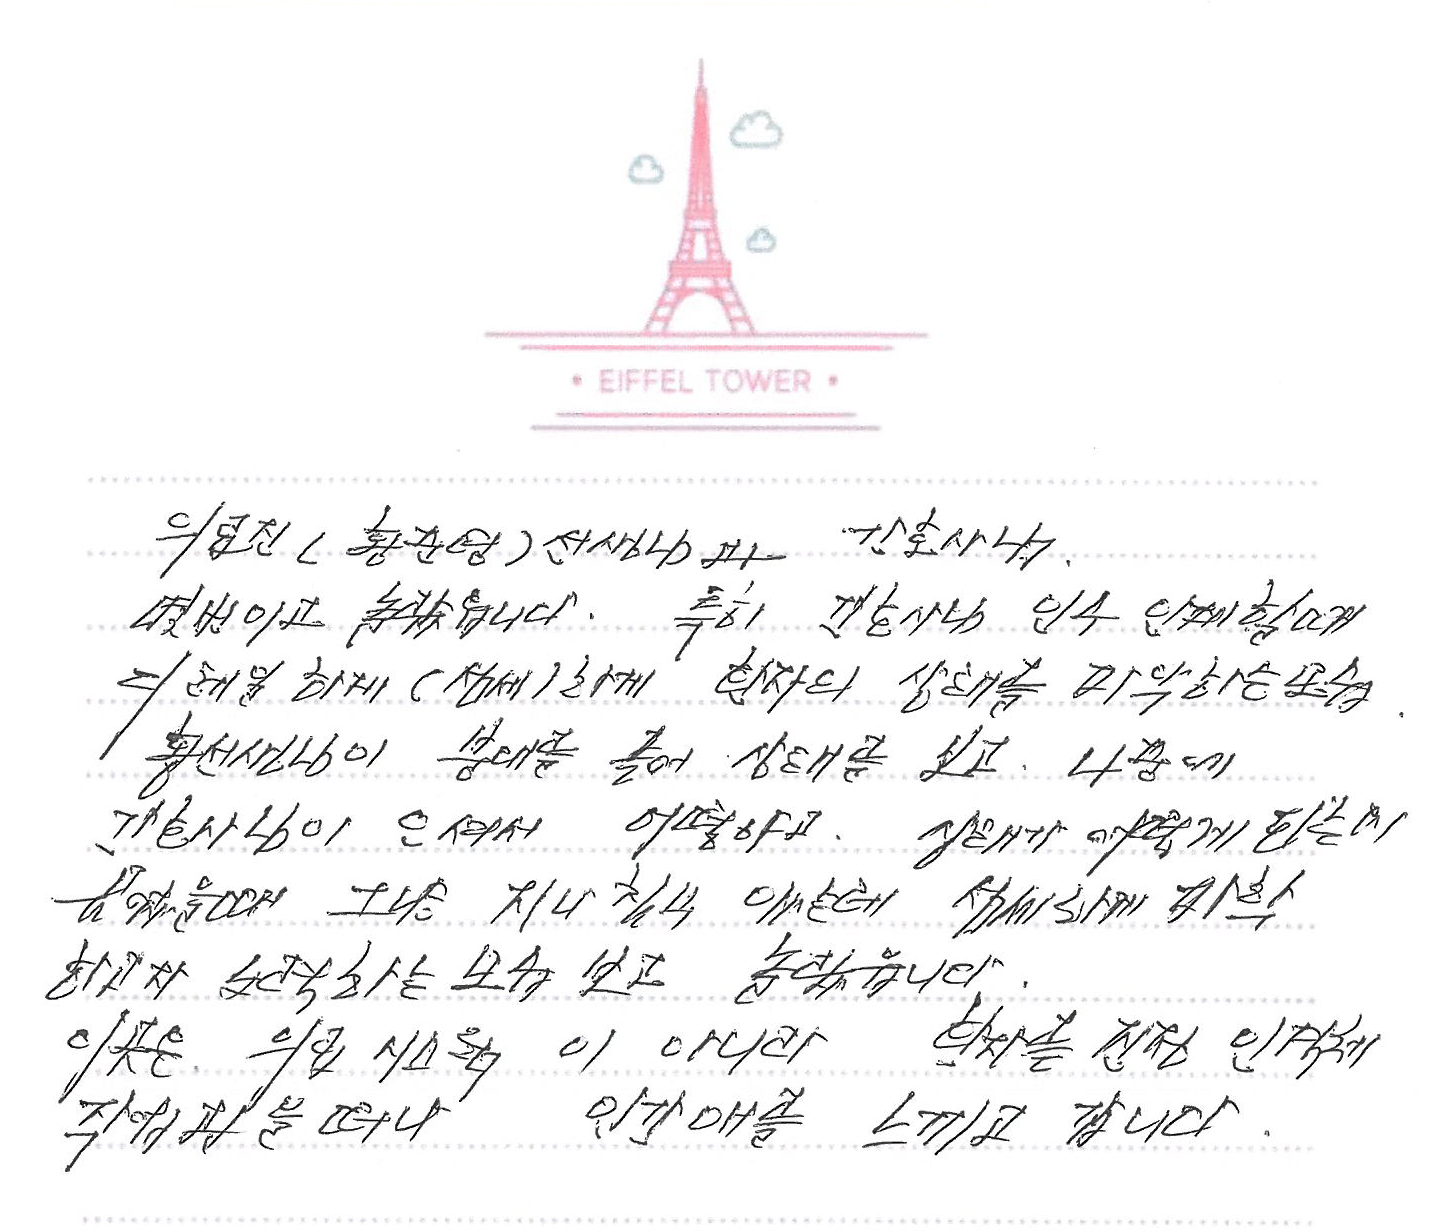 EIFFEL TOWER
의료진 (황준영) 선생님과 간호사님.
몇번이고 놀랐습니다. 특히 간호사님 인수 인계 할때
디테일 하게 (섬세) 하게 환자의 상태를 파악하는 모습.
황선생님이 붕대를 풀어 상태를 보고. 나중에
간호사님이 오셔서 어떻하고. 상태가 어떻게
그냥 지나 칠 수 있는데 섬세하게
하고자 노력하는 모습 보고 놀랐습니다.
이곳은. 의료 시스템 이 아니라 환자를 진정 인격체
직업관을 떠나 인간애를 느끼고 갑니다.